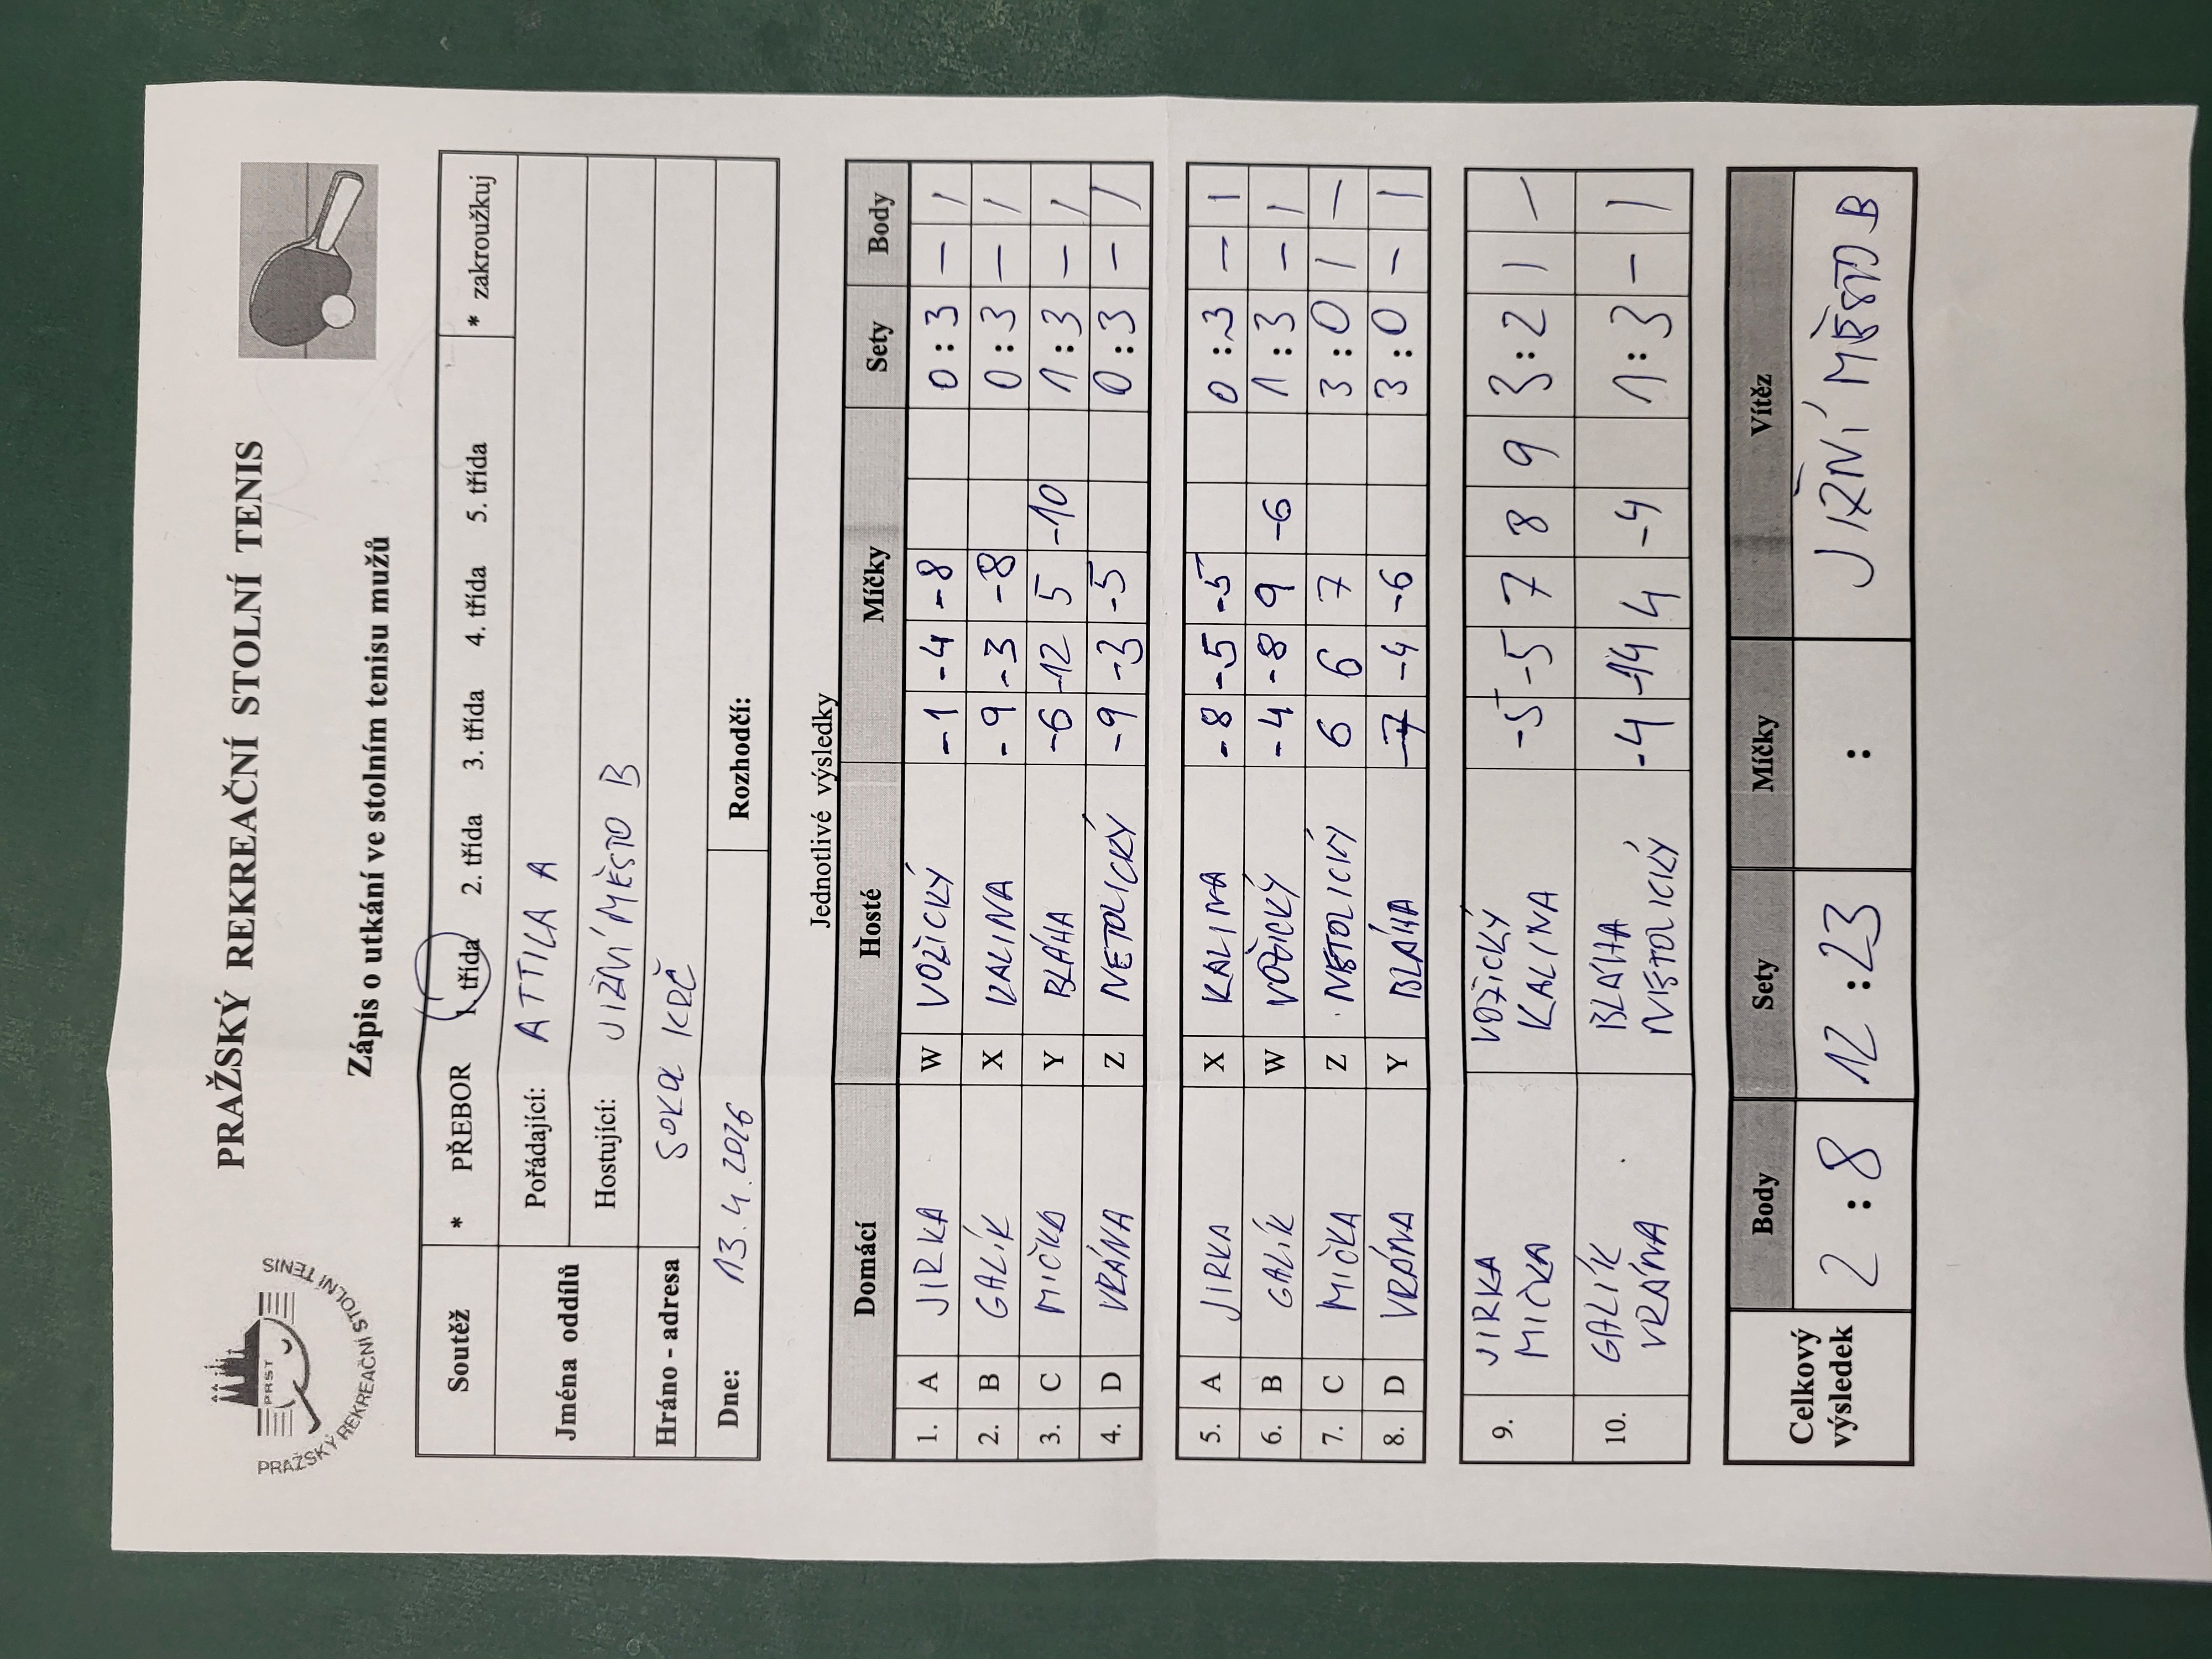 PRAŽSKÝ REKREAČNÍ STOLNÍ TENIS
PRST
PRAŽSKÝ REKREAČNÍ STOLNÍ TENIS
Zápis o utkání ve stolním tenisu mužů
Soutěž * PŘEBOR 1. třída 2. třída 3. třída 4. třída 5. třída * zakroužkuj
Jména oddílů Pořádající: ATTILA A
Hostující: JIŽNÍ MĚSTO B
Hráno - adresa SOKOL KRČ
Dne: 13.4.2026 Rozhodčí:
Jednotlivé výsledky
Domácí Hosté Míčky Sety Body
1. A JIRKA W VOZICKÝ -1 -4 -8 0:3 — /
2. B GALÍK X KALINA -9 -3 -8 0:3 — /
3. C MIČKA Y BLÁHA -6 -12 5 -10 1:3 — /
4. D VRÁNA Z NETOLICKÝ -9 -3 -5 0:3 — /
5. A JIRKA X KALINA -8 -5 -5 0:3 — 1
6. B GALÍK W VOZICKÝ -4 -8 9 -6 1:3 — /
7. C MIČKA Z NETOLICKÝ 6 6 7 3:0 / —
8. D VRÁNA Y BLÁHA -7 -4 -6 3:0 — 1
9. JIRKA VOZICKÝ -5 -5 7 8 9 3:2 1 —
MIČKA KALINA
10. GALÍK BLÁHA -4 -14 4 -4 1:3 — /
VRÁNA NETOLICKÝ
Celkový výsledek Body Sety Míčky Vítěz
2:8 12:23 : JIŽNÍ MĚSTO B